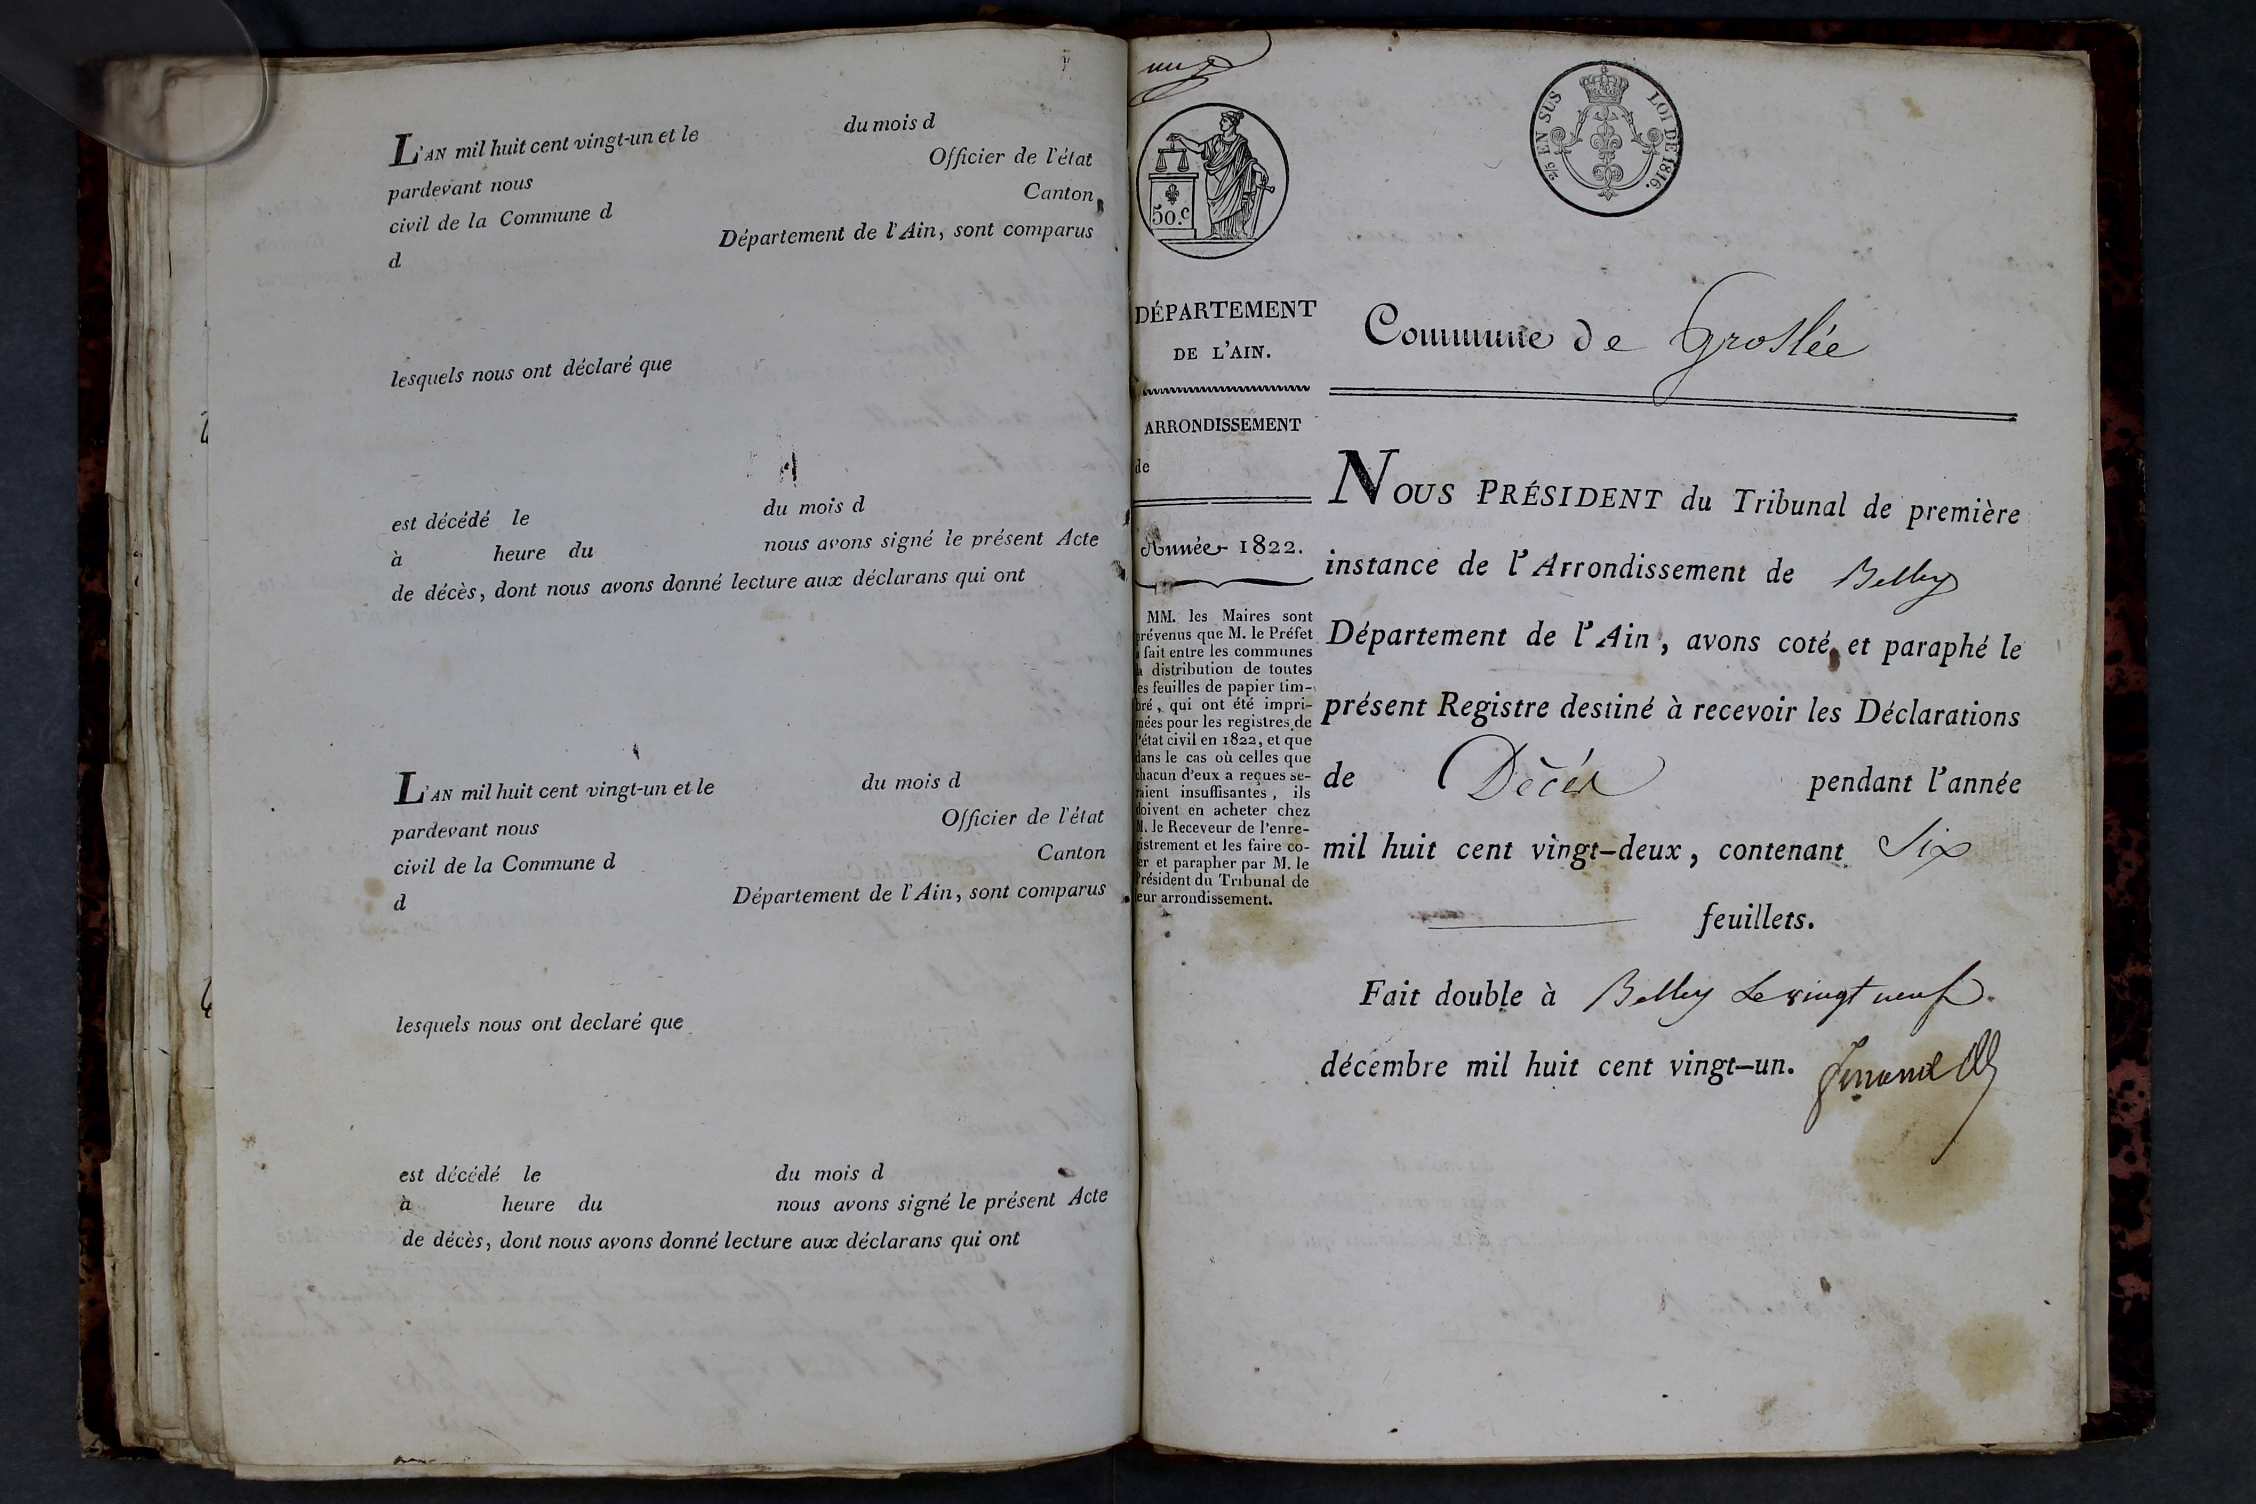 L'AN mil huit cent vingt-un et le du mois d
pardevant nous Officier de l'état
civil de la Commune d Canton
d Département de l'Ain, sont comparus
lesquels nous ont déclaré que
est décédé le du mois d
à heure du nous avons signé le présent Acte
de décès, dont nous avons donné lecture aux déclarans qui ont
L'AN mil huit cent vingt-un et le du mois d
pardevant nous Officier de l'état
civil de la Commune d Canton
d Département de l'Ain, sont comparus
lesquels nous ont declaré que
est décédé le du mois d
à heure du nous avons signé le présent Acte
de décès, dont nous avons donné lecture aux déclarans qui ont
50.c
2/5 EN SUS LOI DE 1816.
DÉPARTEMENT
DE L'AIN.
ARRONDISSEMENT
de
Année 1822.
MM. les Maires sont
prévenus que M. le Préfet
a fait entre les communes
la distribution de toutes
les feuilles de papier tim-
bré, qui ont été impri-
mées pour les registres de
l'état civil en 1822, et que
dans le cas où celles que
chacun d'eux a reçues se-
raient insuffisantes, ils
doivent en acheter chez
M. le Receveur de l'enre-
gistrement et les faire co-
ter et parapher par M. le
Président du Tribunal de
leur arrondissement.
Commune de Groslée
NOUS PRÉSIDENT du Tribunal de première
instance de l'Arrondissement de Belley
Département de l'Ain, avons coté et paraphé le
présent Registre destiné à recevoir les Déclarations
de Décès pendant l'année
mil huit cent vingt-deux, contenant Six
feuillets.
Fait double à Belley Le vingt neuf
décembre mil huit cent vingt-un.